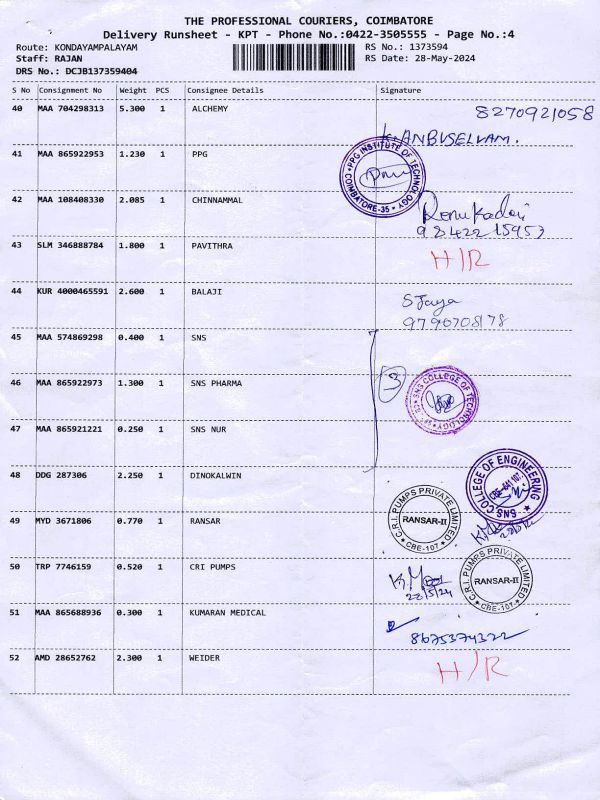 THE PROFESSIONAL COURIERS, COIMBATORE
Delivery Runsheet - KPT - Phone No.:0422-3505555 - Page No.:4
Route: KONDAYAMPALAYAM RS No.: 1373594
Staff: RAJAN RS Date: 28-May-2024
DRS No.: DCJB137359404
S No Consignment No Weight PCS Consignee Details Signature
40 MAA 704298313 5.300 1 ALCHEMY 8270921058
K. ANBUSELVAM.
41 MAA 865922953 1.230 1 PPG PPG INSTITUTE OF TECHNOLOGY COIMBATORE-35
42 MAA 108408330 2.085 1 CHINNAMMAL
43 SLM 346888784 1.800 1 PAVITHRA H/R
44 KUR 4000465591 2.600 1 BALAJI S Jaya
9790708178
45 MAA 574869298 0.400 1 SNS
46 MAA 865922973 1.300 1 SNS PHARMA 3 SNS COLLEGE OF TECHNOLOGY
47 MAA 865921221 0.250 1 SNS NUR
48 DDG 287306 2.250 1 DINOKALWIN SNS COLLEGE OF ENGINEERING
49 MYD 3671806 0.770 1 RANSAR C.R.I. PUMPS PRIVATE LIMITED RANSAR-II CBE-107
50 TRP 7746159 0.520 1 CRI PUMPS C.R.I. PUMPS PRIVATE LIMITED RANSAR-II CBE-107
51 MAA 865688936 0.300 1 KUMARAN MEDICAL 8675374322
52 AMD 28652762 2.300 1 WEIDER H/R